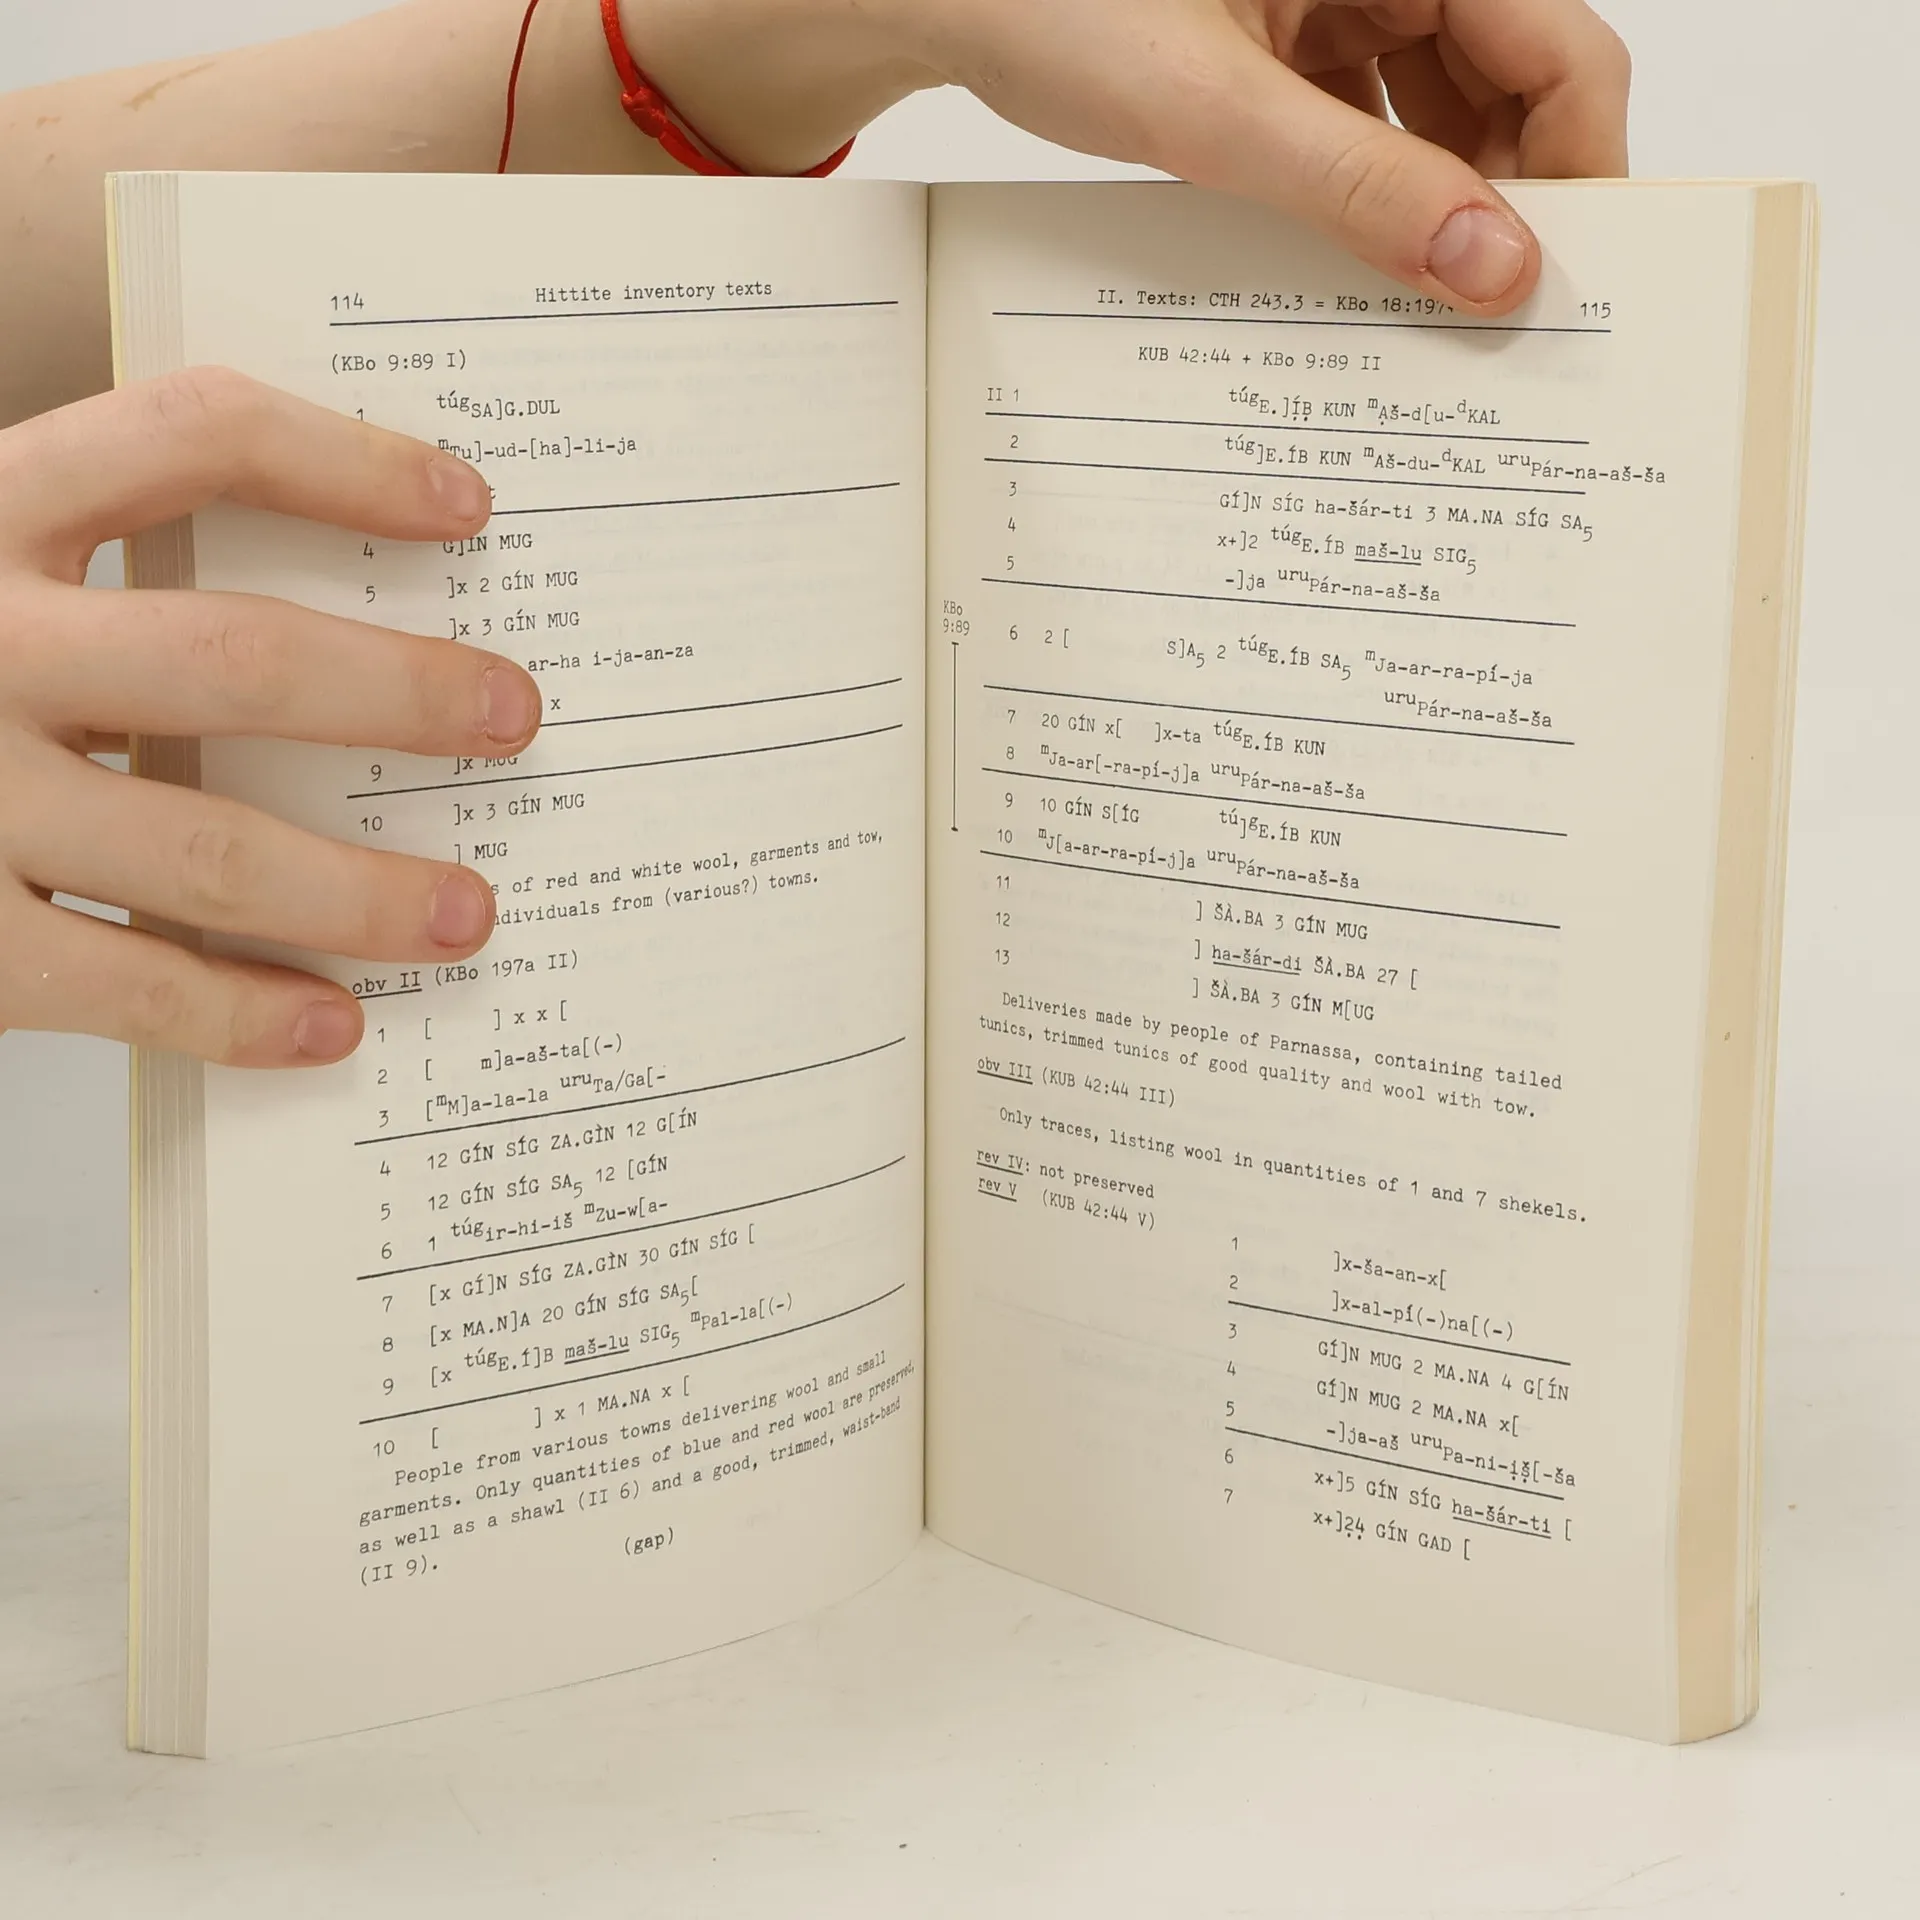 114 Hittite inventory texts
(KBo 9:89 I)
1 túgSA]G.DUL
mTu]-ud-[ha]-li-ja
4 G]ÍN MUG
5 ]x 2 GÍN MUG
]x 3 GÍN MUG
ar-ha i-ja-an-za
x
9 ]x MUG
10 ]x 3 GÍN MUG
] MUG
of red and white wool, garments and tow,
from (various?) towns.
obv II (KBo 197a II)
1 [ ] x x [
2 [ m]a-aš-ta[(-)
3 [mM]a-la-la uruTa/Ga[-
4 12 GÍN SÍG ZA.GÌN 12 G[ÍN
5 12 GÍN SÍG SA5 12 [GÍN
6 1 túgir-hi-iš mZu-w[a-
7 [x GÍ]N SÍG ZA.GÌN 30 GÍN SÍG [
8 [x MA.N]A 20 GÍN SÍG SA5[
9 [x túgE.Í]B maš-lu SIG5 mPal-la[(-)
10 [ ] x 1 MA.NA x [
People from various towns delivering wool and small
garments. Only quantities of blue and red wool are preserved,
as well as a shawl (II 6) and a good, trimmed, waist-band
(II 9).
(gap)
II. Texts: CTH 243.3 = KBo 115
KUB 42:44 + KBo 9:89 II
II 1 túgE.]ÍB KUN mAš-d[u-dKAL
2 túg]E.ÍB KUN mAš-du-dKAL uruPár-na-aš-ša
3 GÍ]N SÍG ha-šár-ti 3 MA.NA SÍG SA5
4 x+]2 túgE.ÍB maš-lu SIG5
5 -]ja uruPár-na-aš-ša
KBo
9:89
6 2 [ S]A5 2 túgE.ÍB SA5 mJa-ar-ra-pí-ja
uruPár-na-aš-ša
7 20 GÍN x[ ]x-ta túgE.ÍB KUN
8 mJa-ar[-ra-pí-j]a uruPár-na-aš-ša
9 10 GÍN S[ÍG tú]gE.ÍB KUN
10 mJ[a-ar-ra-pí-j]a uruPár-na-aš-ša
11 ] ŠÀ.BA 3 GÍN MUG
12 ] ha-šár-di ŠÀ.BA 27 [
13 ] ŠÀ.BA 3 GÍN M[UG
Deliveries made by people of Parnassa, containing tailed
tunics, trimmed tunics of good quality and wool with tow.
obv III (KUB 42:44 III)
Only traces, listing wool in quantities of 1 and 7 shekels.
rev IV: not preserved
rev V (KUB 42:44 V)
1 ]x-ša-an-x[
2 ]x-al-pí(-)na[(-)
3 GÍ]N MUG 2 MA.NA 4 G[ÍN
4 GÍ]N MUG 2 MA.NA x[
5 -]ja-aš uruPa-ni-iš[-ša
6 x+]5 GÍN SÍG ha-šár-ti [
7 x+]24 GÍN GAD [